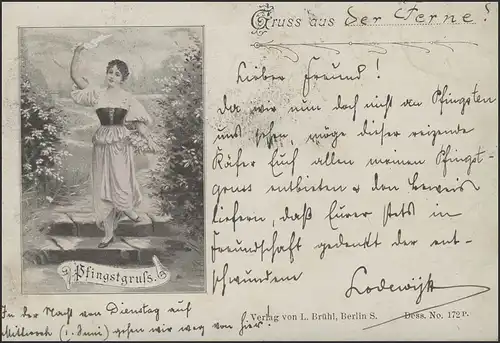 Gruss aus der Ferne!
Lieber Freund!
Da wir nun doch nicht an Pfingsten
uns sehen, möge dieser reizende
Käfer Euch allen meinen Pfingst-
gruss entbieten & den Beweis
liefern, daß Eurer stets in
Freundschaft gedenkt der ent-
schwundene
Lodewijk
Pfingstgruss.
In der Nacht von Dienstag auf
Mittwoch (1. Juni) gehen wir weg von hier!
Verlag von L. Brühl, Berlin S. Dess. No. 172 P.